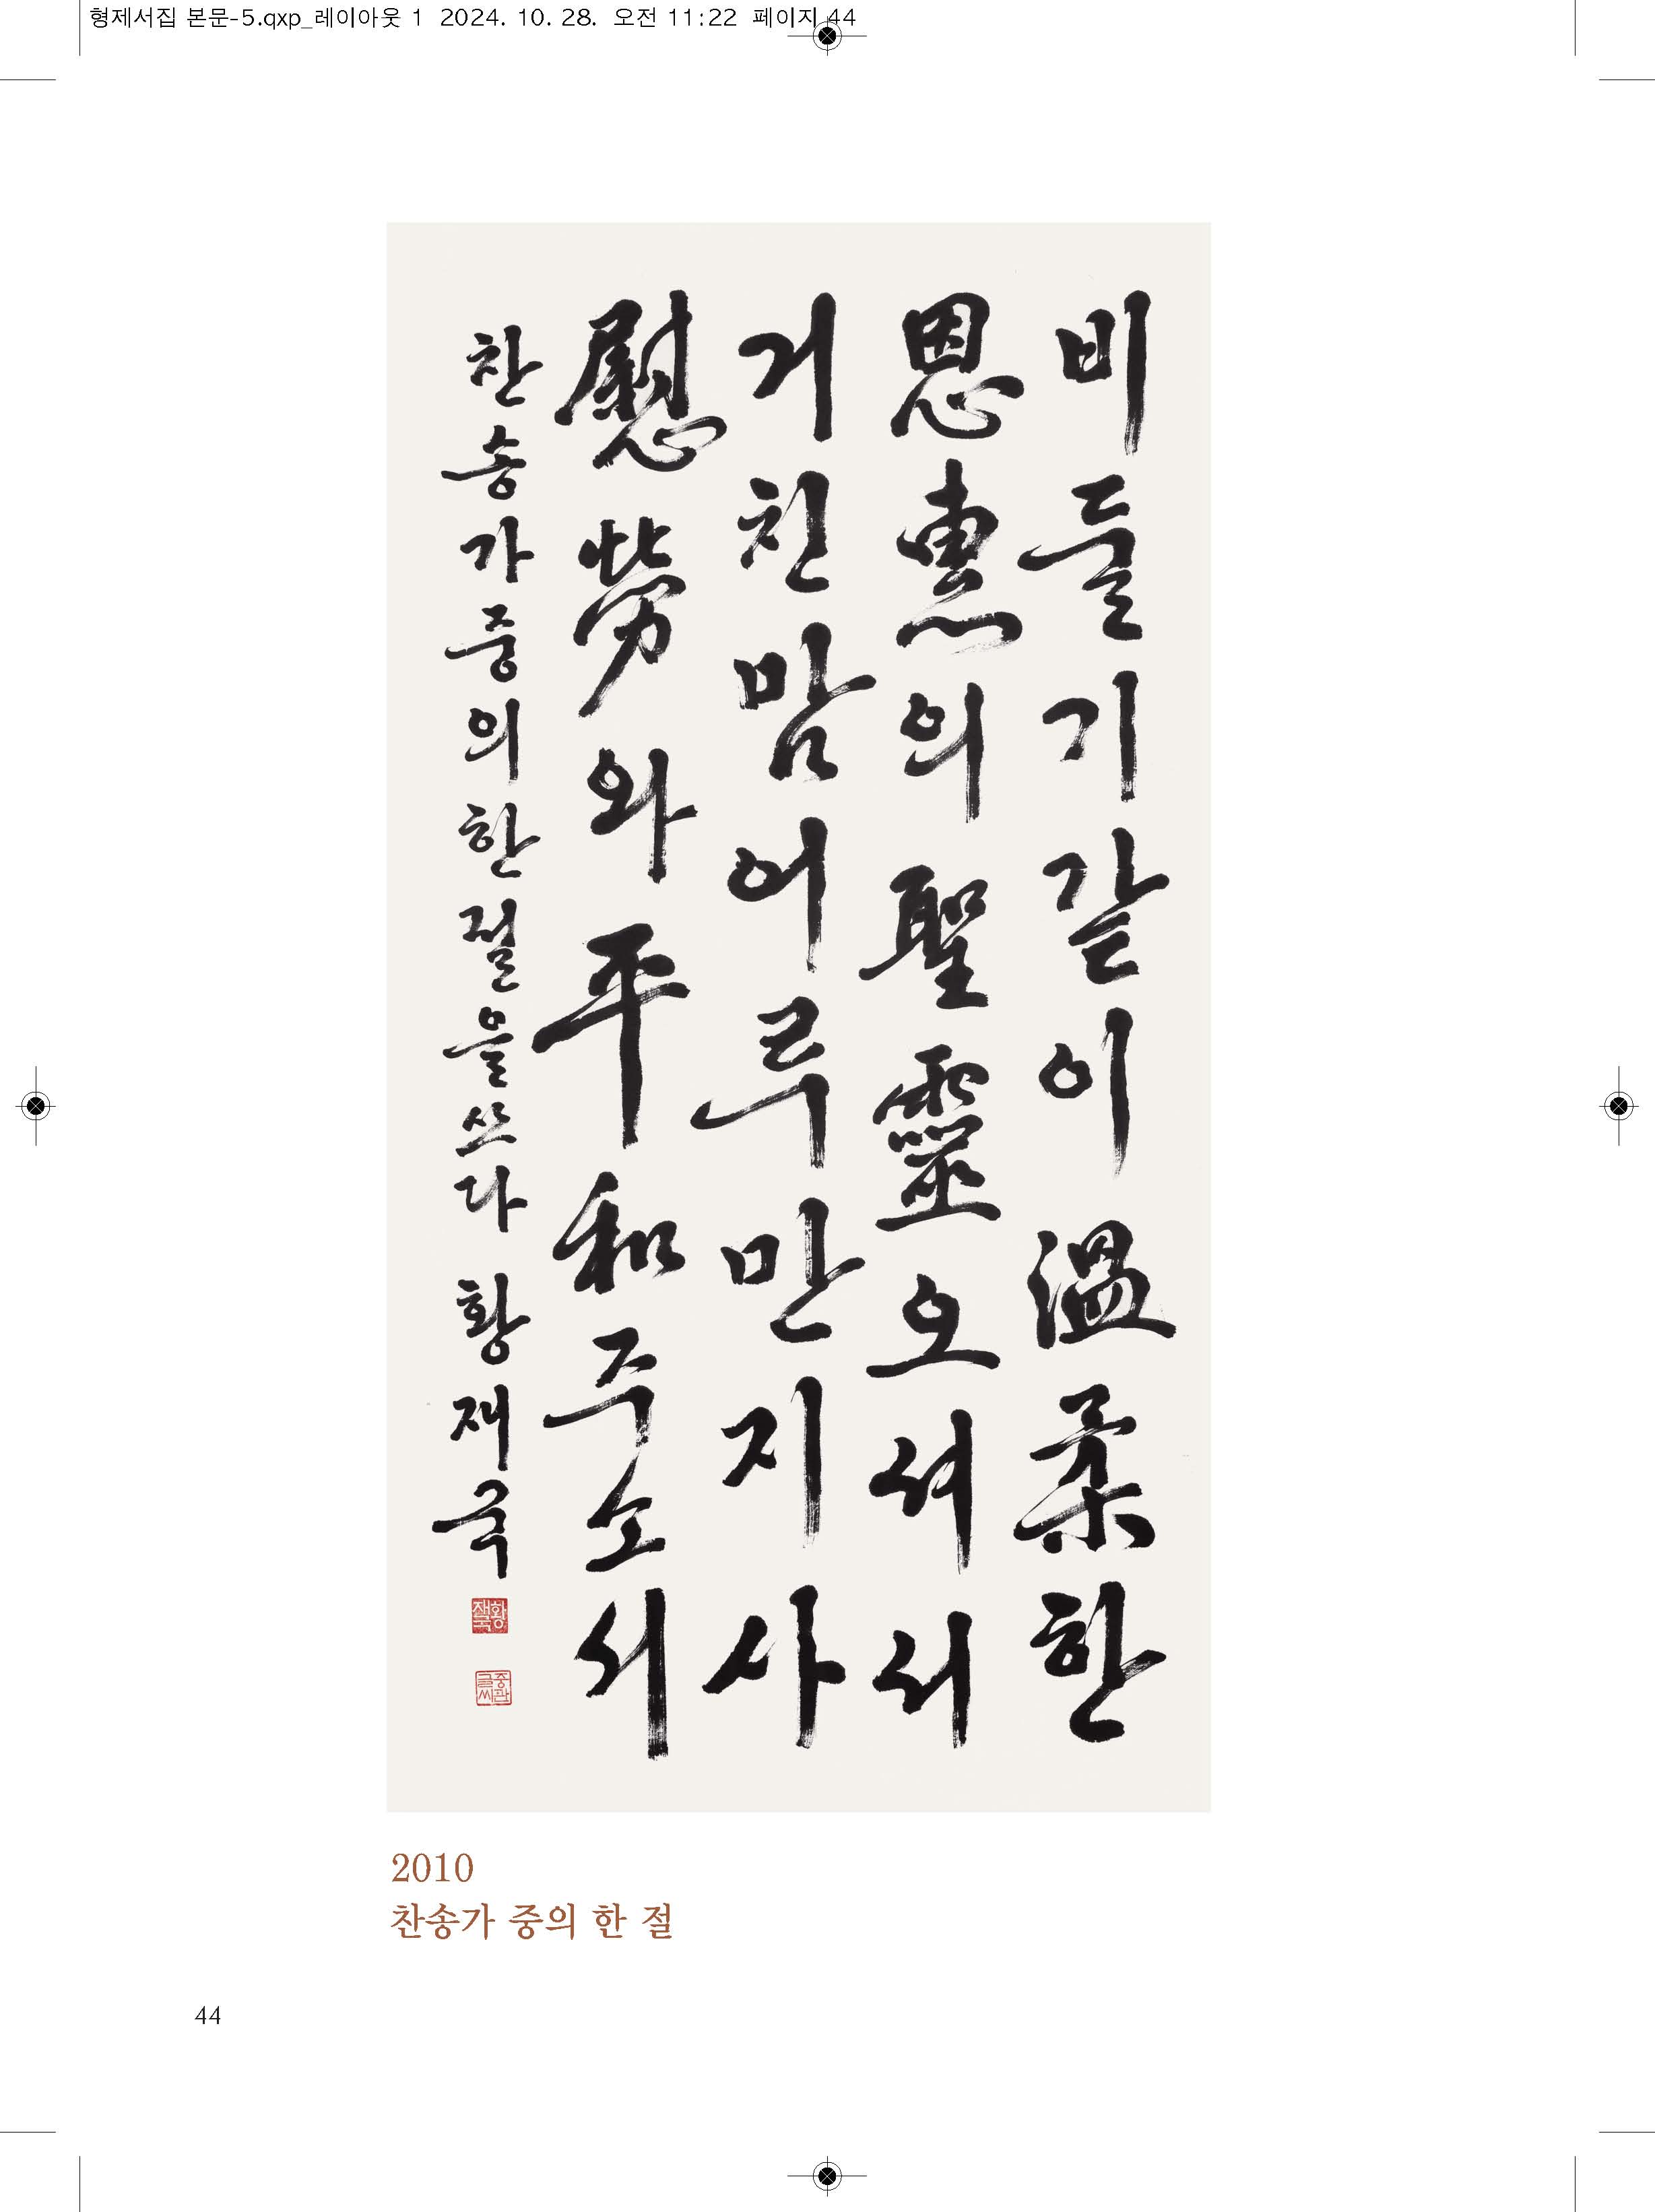 형제서집 본문-5.qxp_레이아웃 1 2024. 10. 28. 오전 11:22 페이지 44
비들기같이 溫柔한
恩惠의 聖靈 오셔서
거친 맘 어루만지사
慰勞와 平和 주소서
찬송가 중의 한 절을 쓰다 황재국
황재국
중관글씨
2010
찬송가 중의 한 절
44